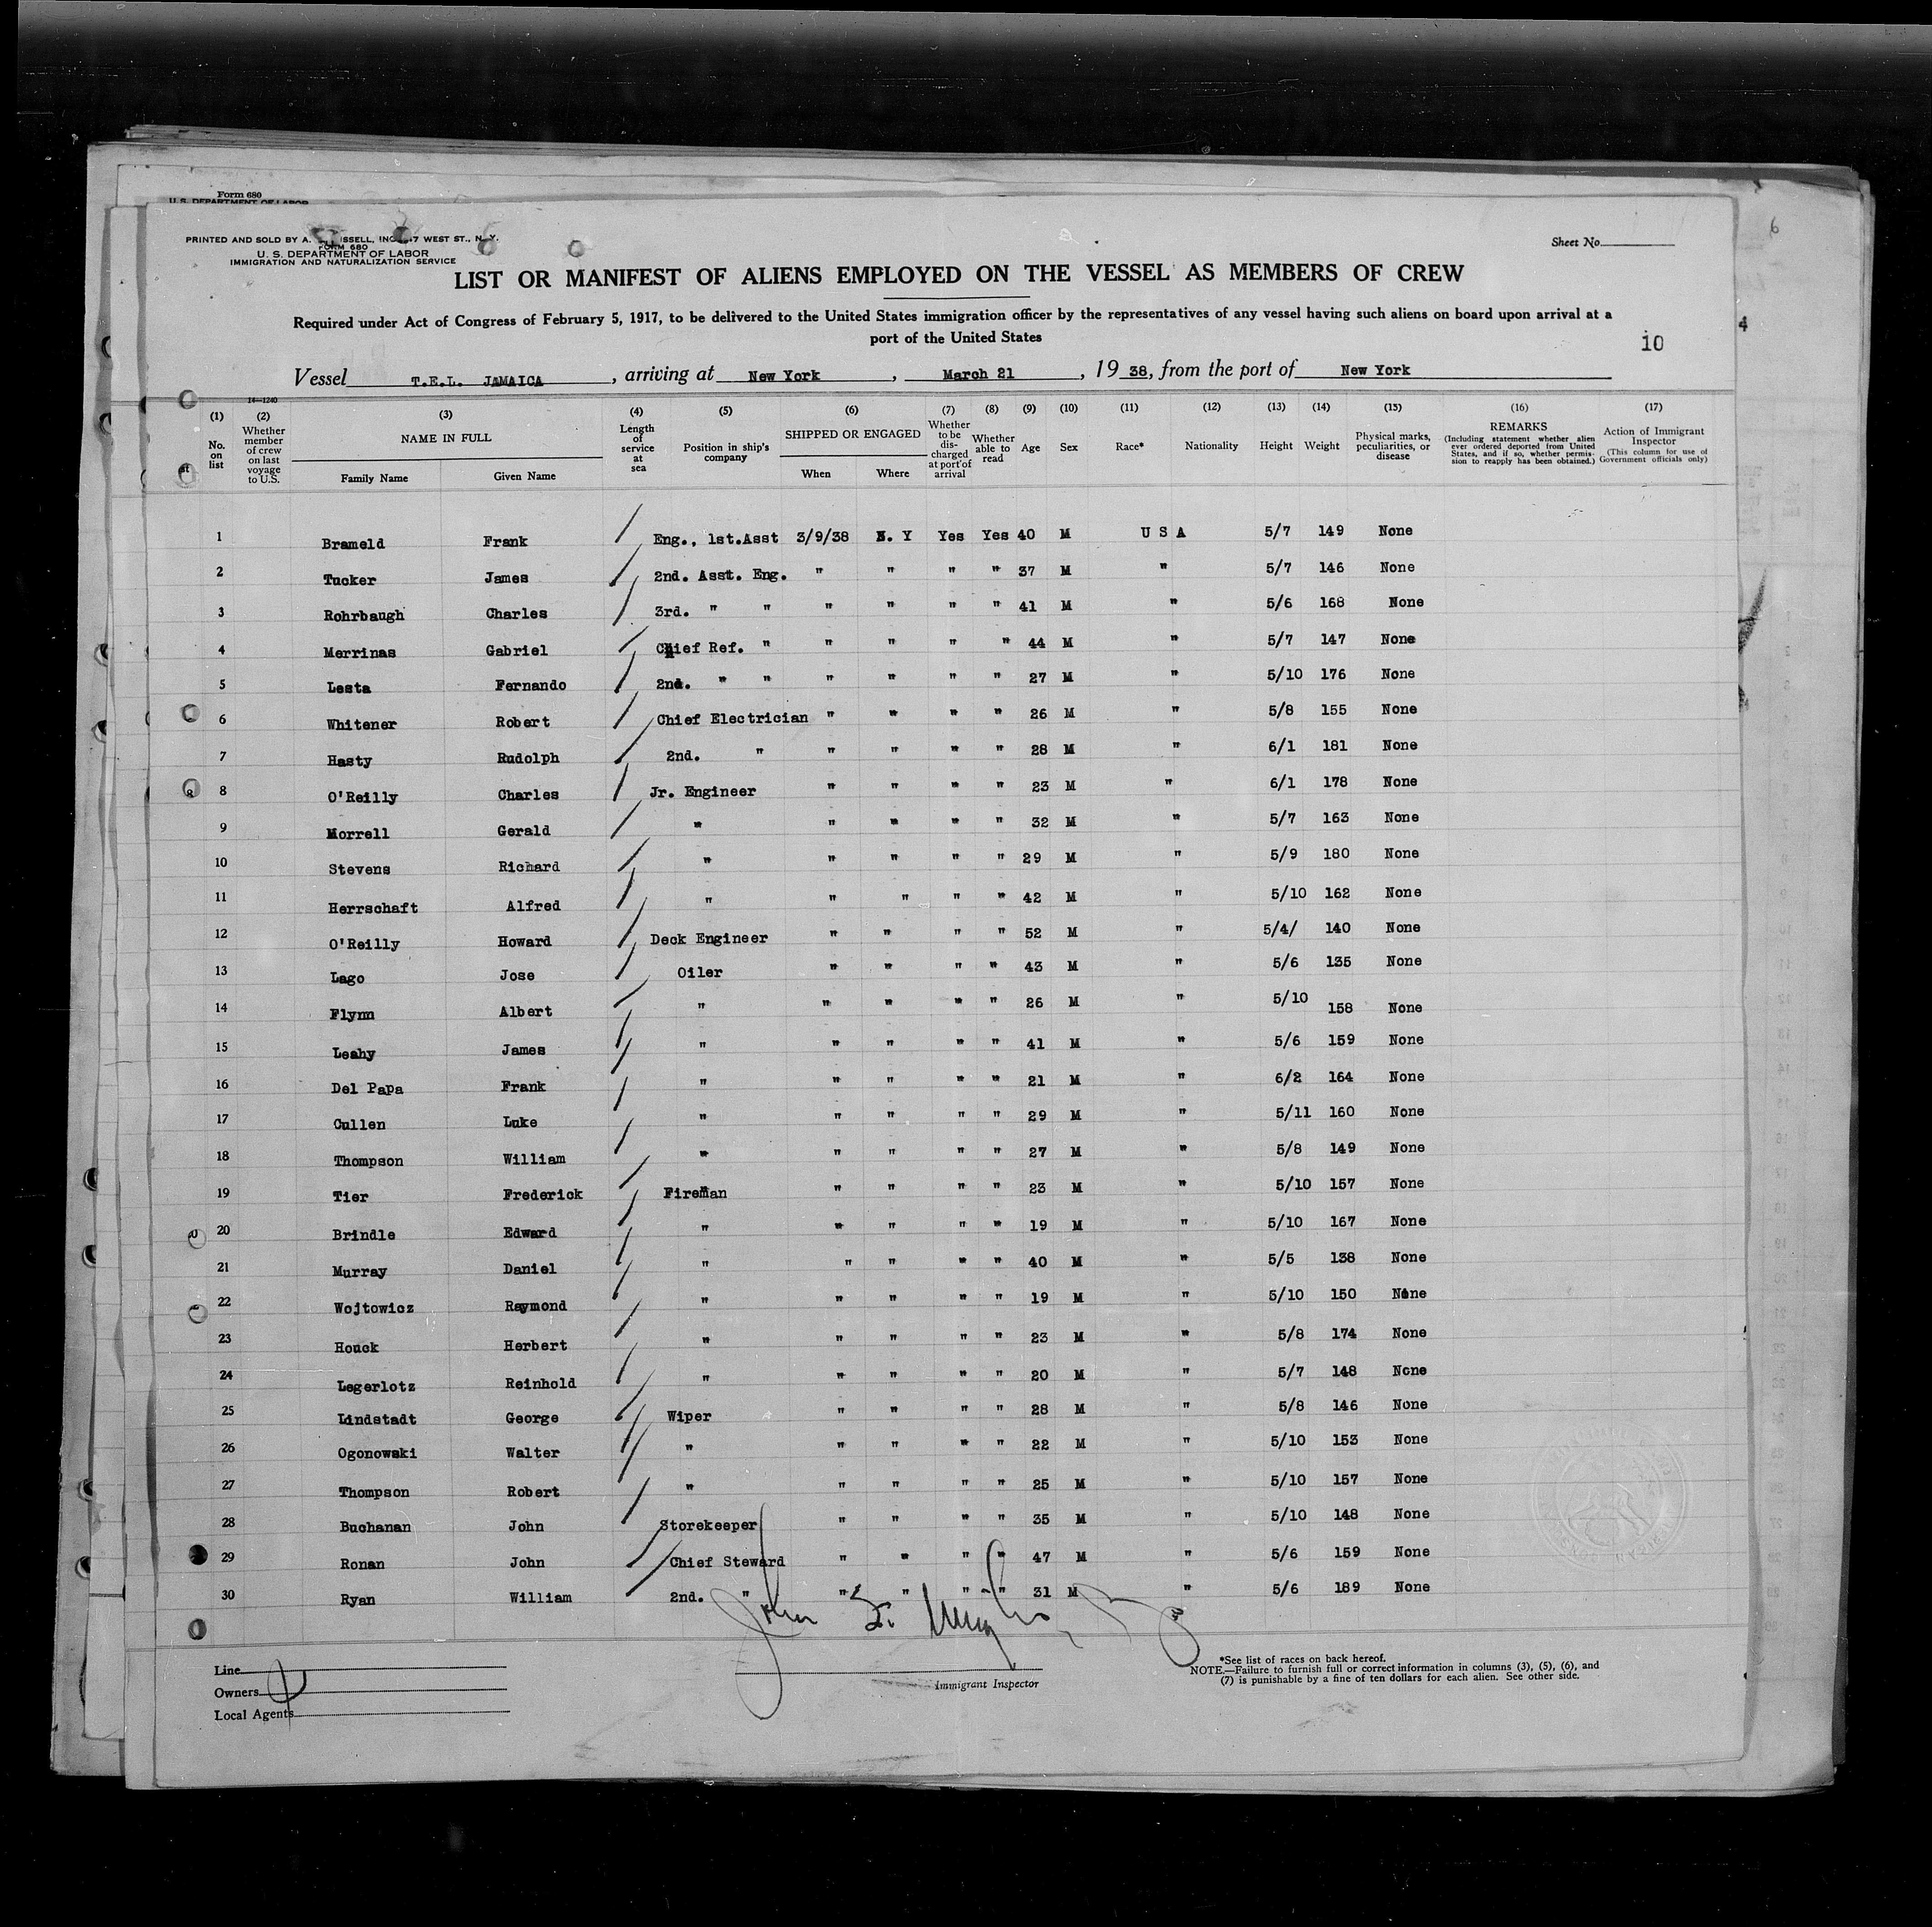 Form 680
U. S. DEPARTMENT OF LABOR
PRINTED AND SOLD BY A. ISSELL, INC. 17 WEST ST., N. Y.
FORM 680
U. S. DEPARTMENT OF LABOR
IMMIGRATION AND NATURALIZATION SERVICE
Sheet No.
6
LIST OR MANIFEST OF ALIENS EMPLOYED ON THE VESSEL AS MEMBERS OF CREW
Required under Act of Congress of February 5, 1917, to be delivered to the United States immigration officer by the representatives of any vessel having such aliens on board upon arrival at a
port of the United States
10
4
Vessel T.E.L. JAMAICA, arriving at New York, March 21, 1938, from the port of New York
14—1240
(1) (2) (3) (4) (5) (6) (7) (8) (9) (10) (11) (12) (13) (14) (15) (16) (17)
No. on list Whether member of crew on last voyage to U.S. NAME IN FULL Family Name Given Name Length of service at sea Position in ship's company SHIPPED OR ENGAGED When Where Whether to be discharged at port of arrival Whether able to read Age Sex Race* Nationality Height Weight Physical marks, peculiarities, or disease REMARKS (Including statement whether alien ever ordered deported from United States, and if so, whether permission to reapply has been obtained.) Action of Immigrant Inspector (This column for use of Government officials only)
1 Brameld Frank Eng., 1st.Asst 3/9/38 N. Y Yes Yes 40 M U S A 5/7 149 None
2 Tucker James 2nd. Asst. Eng. " " " " 37 M " 5/7 146 None
3 Rohrbaugh Charles 3rd. " " " " " " 41 M " 5/6 168 None
4 Merrinas Gabriel Chief Ref. " " " " " 44 M " 5/7 147 None
5 Lesta Fernando 2nd. " " " " " " 27 M " 5/10 176 None
6 Whitener Robert Chief Electrician " " " " 26 M " 5/8 155 None
7 Hasty Rudolph 2nd. " " " " " 28 M " 6/1 181 None
8 O'Reilly Charles Jr. Engineer " " " " 23 M " 6/1 178 None
9 Morrell Gerald " " " " " 32 M " 5/7 163 None
10 Stevens Richard " " " " " 29 M " 5/9 180 None
11 Herrschaft Alfred " " " " " 42 M " 5/10 162 None
12 O'Reilly Howard Deck Engineer " " " " 52 M " 5/4/ 140 None
13 Lago Jose Oiler " " " " 43 M " 5/6 135 None
14 Flynn Albert " " " " " 26 M " 5/10 158 None
15 Leahy James " " " " " 41 M " 5/6 159 None
16 Del Papa Frank " " " " " 21 M " 6/2 164 None
17 Cullen Luke " " " " " 29 M " 5/11 160 None
18 Thompson William " " " " " 27 M " 5/8 149 None
19 Tier Frederick Fireman " " " " 23 M " 5/10 157 None
20 Brindle Edward " " " " " 19 M " 5/10 167 None
21 Murray Daniel " " " " " 40 M " 5/5 138 None
22 Wojtowicz Raymond " " " " " 19 M " 5/10 150 None
23 Houck Herbert " " " " " 23 M " 5/8 174 None
24 Legerlotz Reinhold " " " " " 20 M " 5/7 148 None
25 Lindstadt George Wiper " " " " 28 M " 5/8 146 None
26 Ogonowski Walter " " " " " 22 M " 5/10 153 None
27 Thompson Robert " " " " " 25 M " 5/10 157 None
28 Buchanan John Storekeeper " " " " 35 M " 5/10 148 None
29 Ronan John Chief Steward " " " " 47 M " 5/6 159 None
30 Ryan William 2nd. " " " " " 31 M " 5/6 189 None
John
Line
Owners
Local Agents
Immigrant Inspector
*See list of races on back hereof.
NOTE.—Failure to furnish full or correct information in columns (3), (5), (6), and
(7) is punishable by a fine of ten dollars for each alien. See other side.